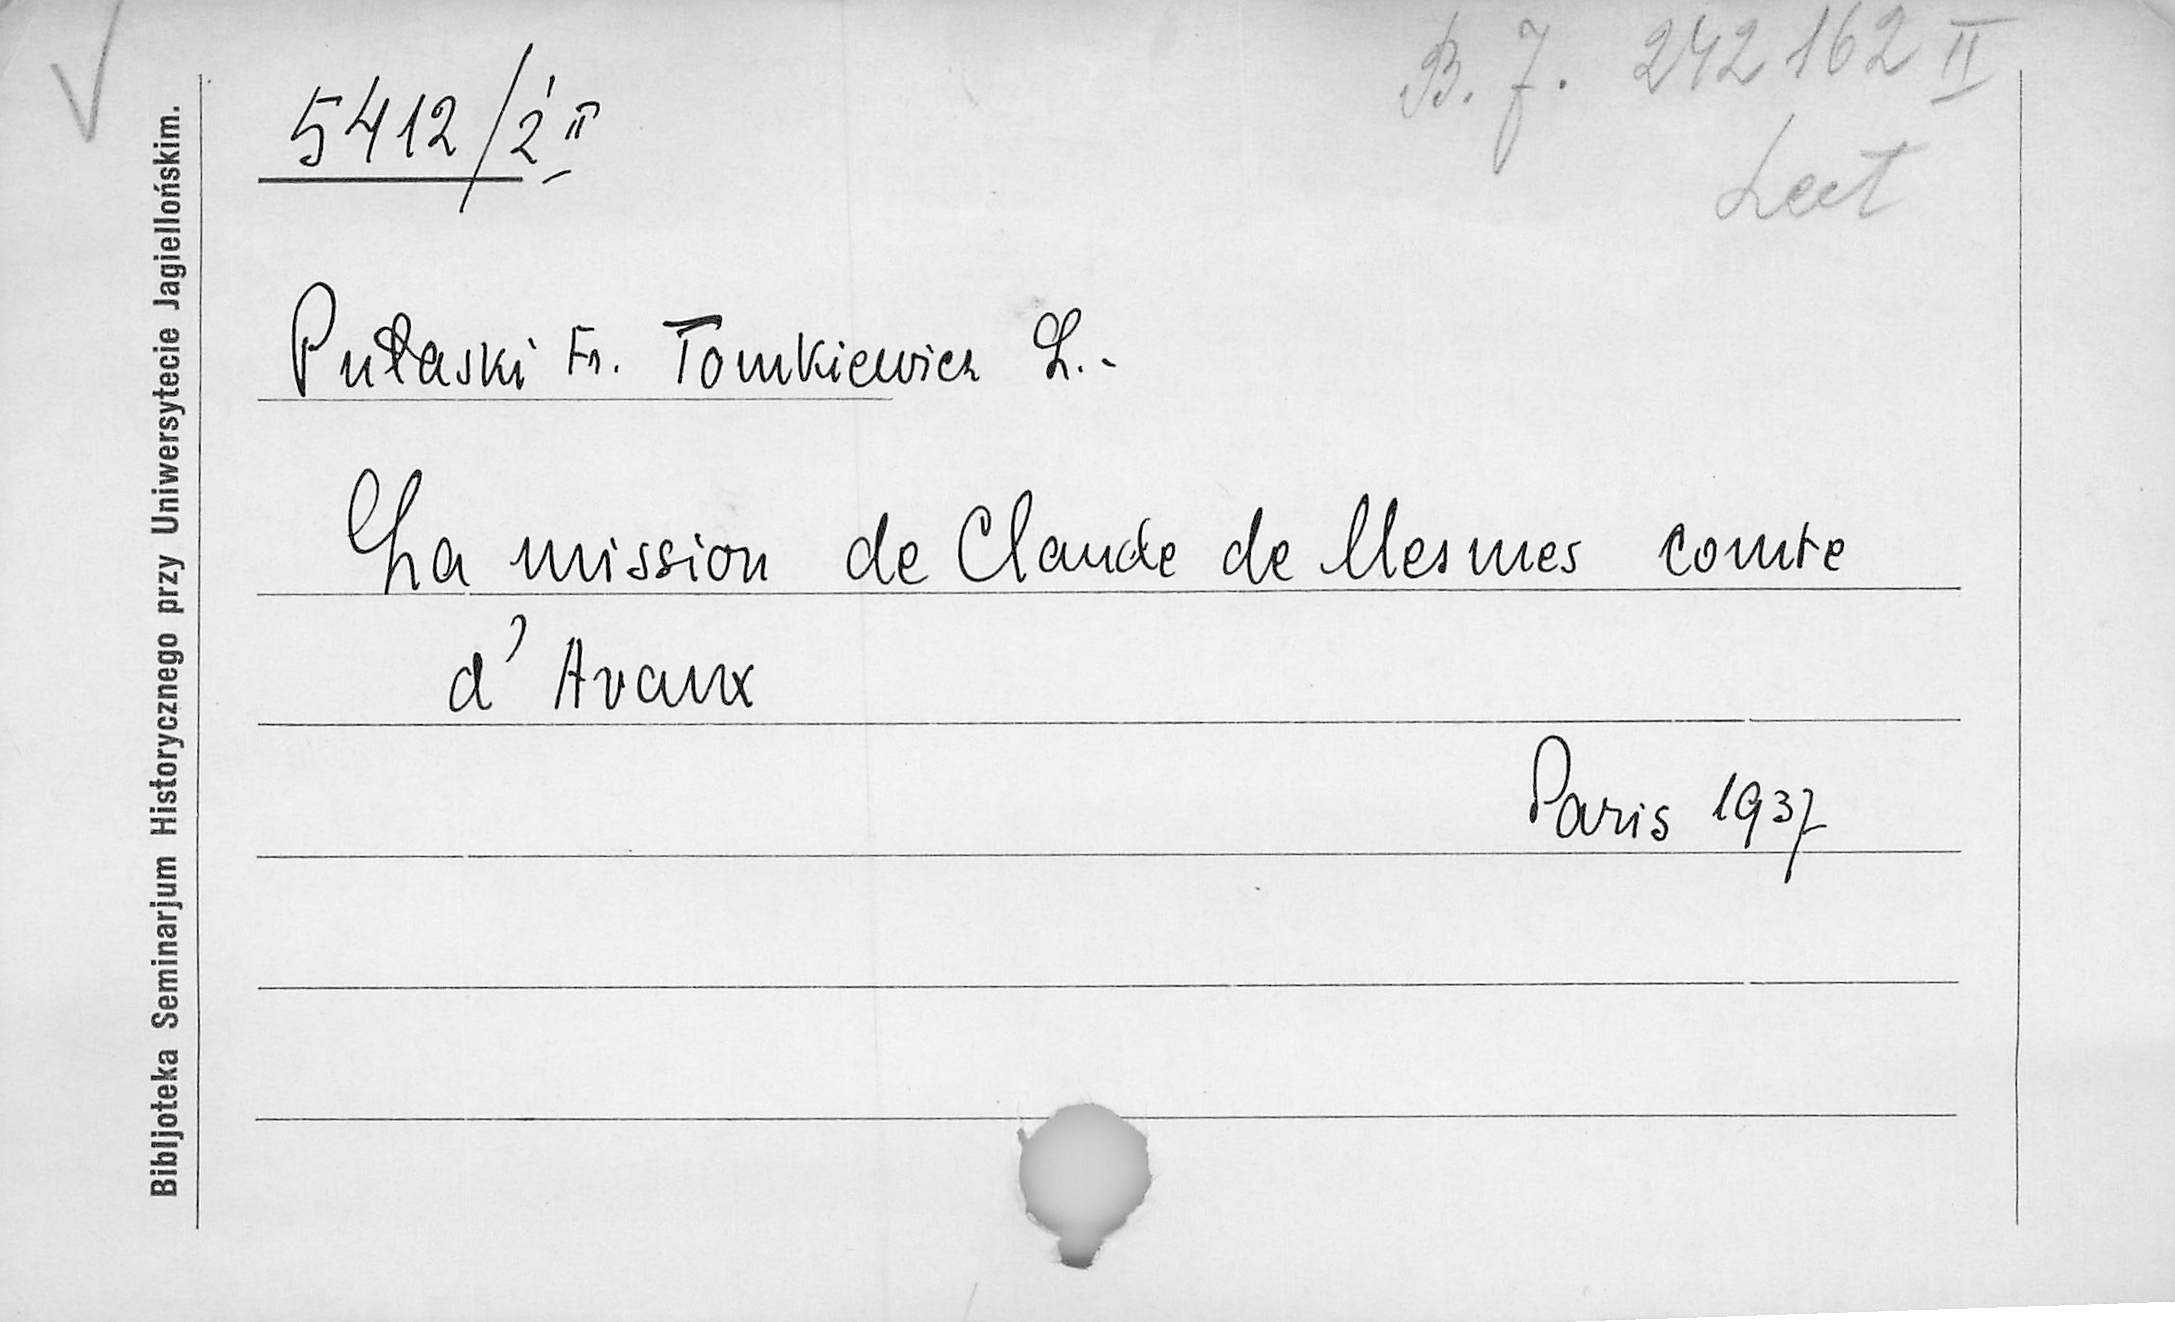 B. J. 242 162 II
Lect
5412/2 II
Pułaski Fr. Tomkiewicz L.-
La mission de Claude de Mesmes comte
d'Avaux
Paris 1937
Bibljoteka Seminarjum Historycznego przy Uniwersytecie Jagiellońskim.